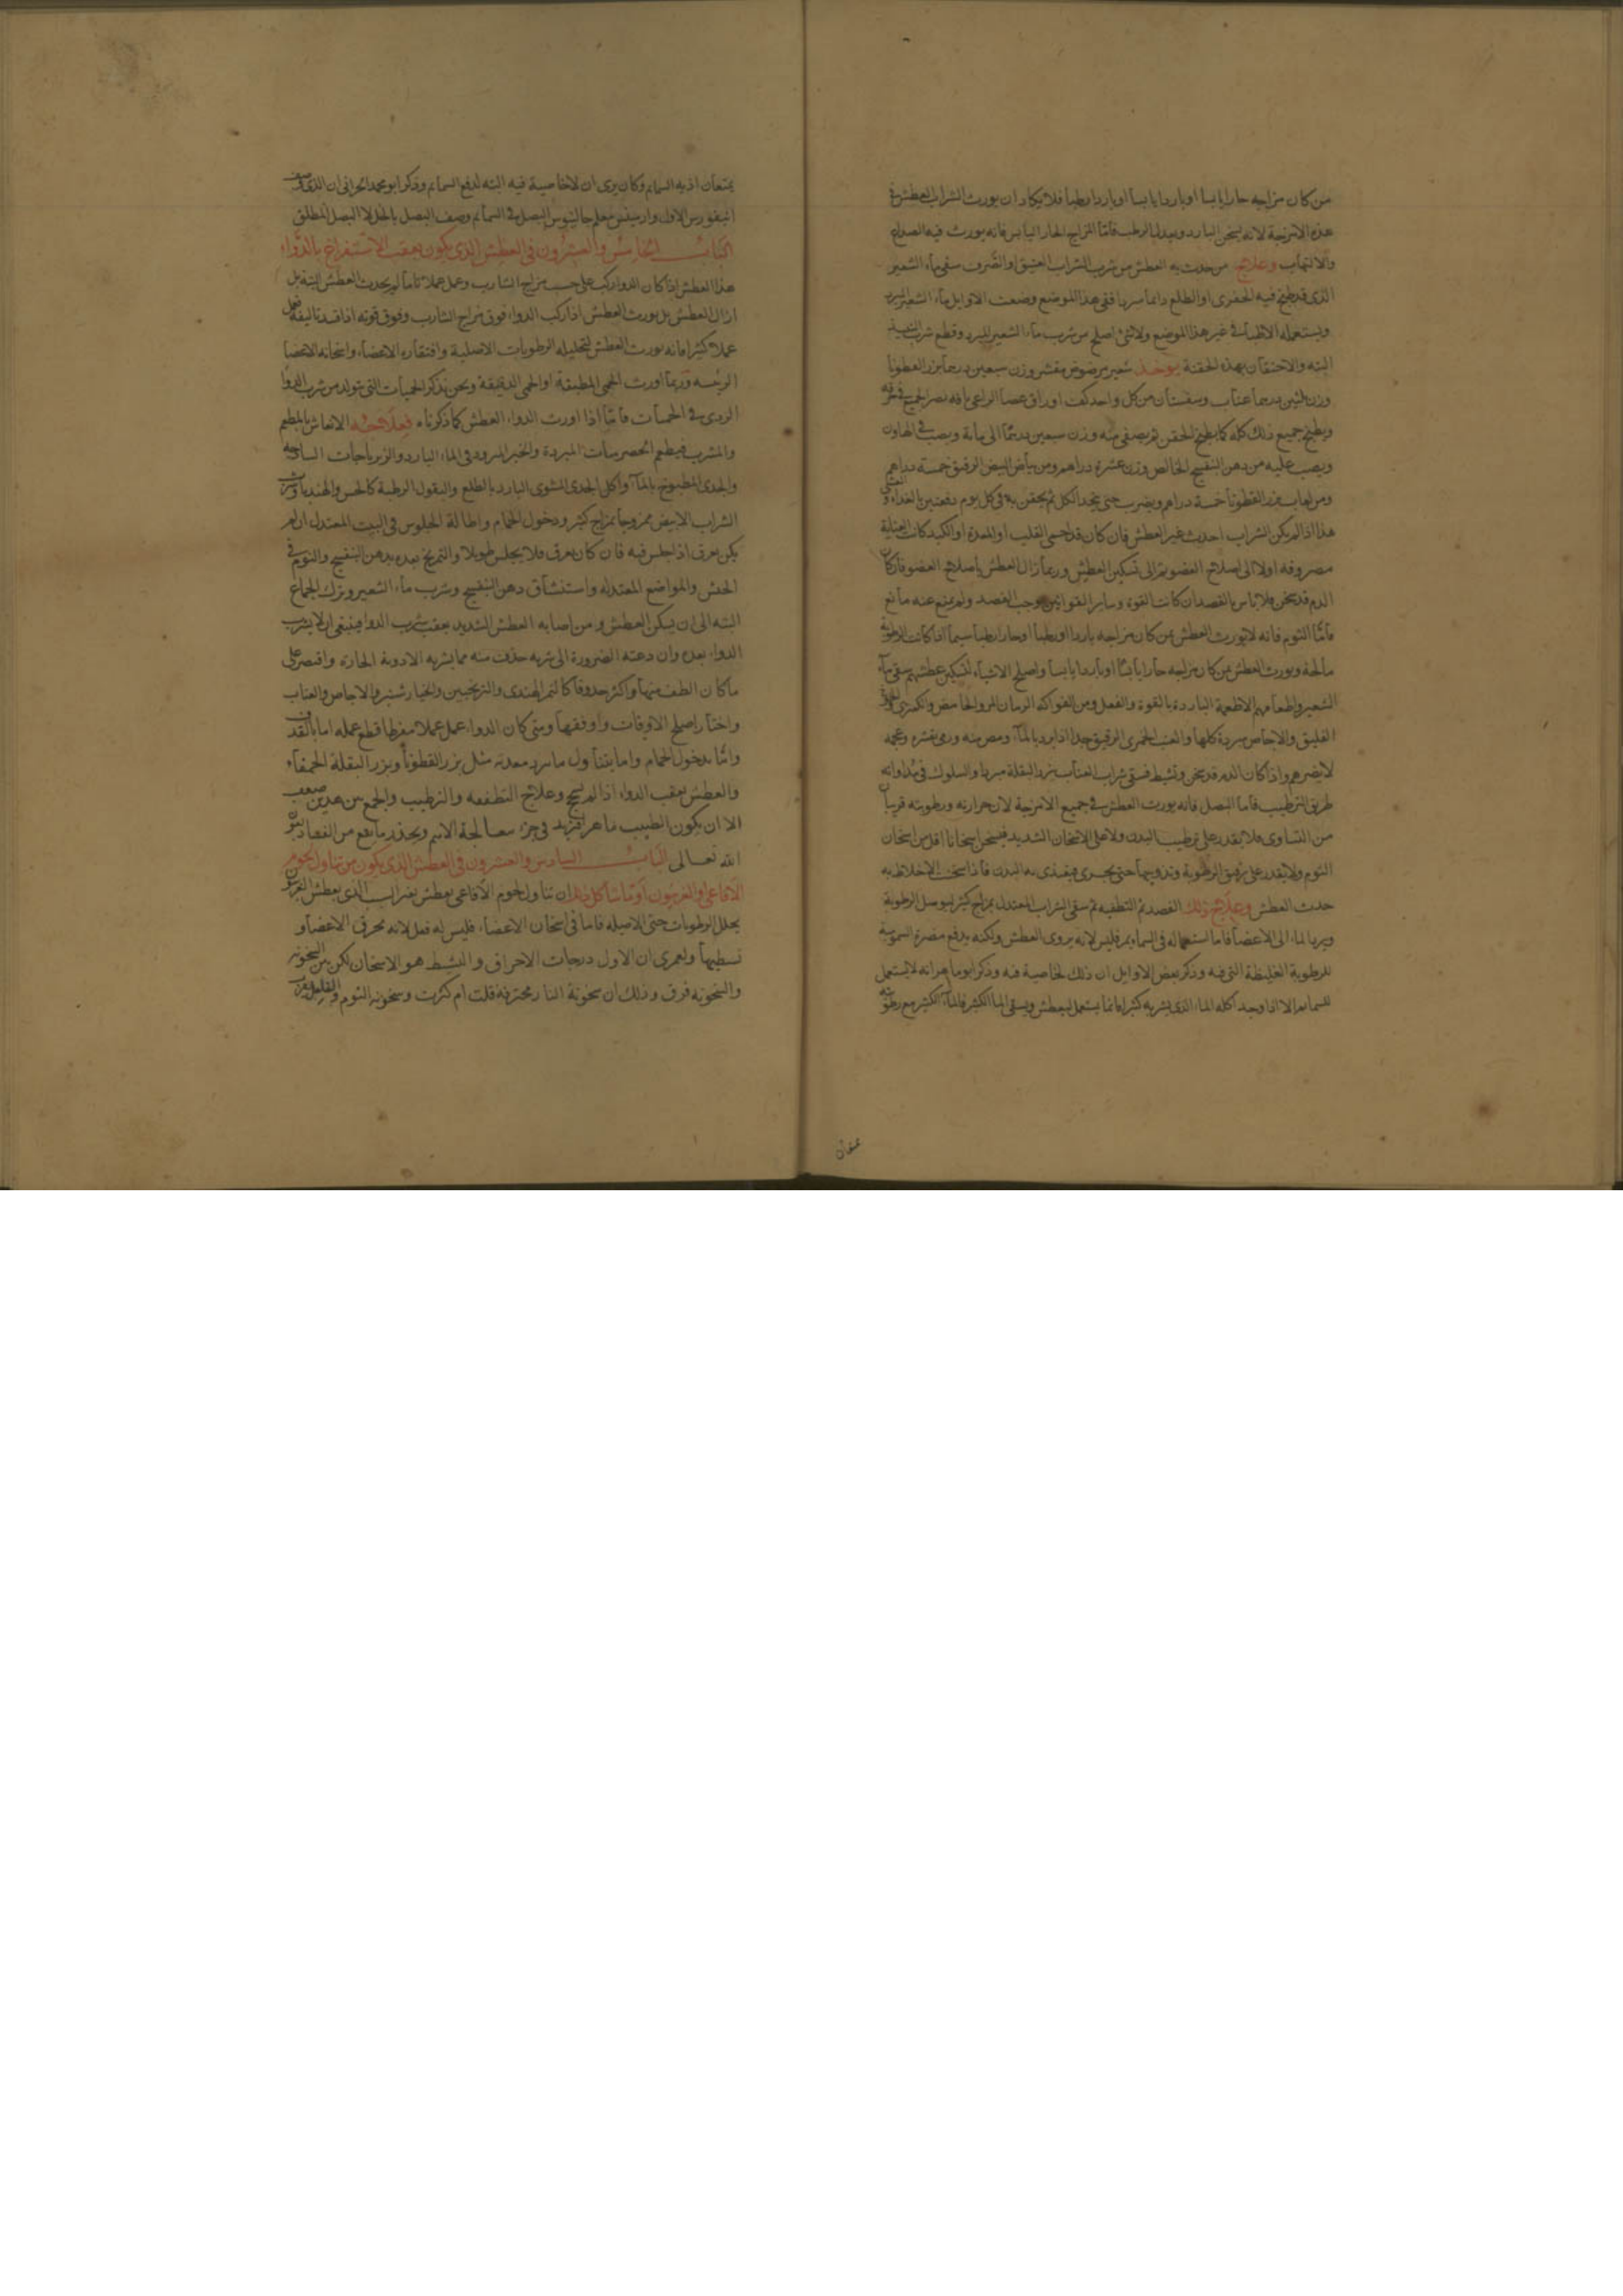 من كان مزاجه حارا يابسا او باردا يابسا او باردا رطبا فلا يكاد ان يورث الشراب العطش في
هذه الامزجة لانه يسخن البارد ويعدل الرطب فاما المزاج الحار اليابس فانه يورث فيه الصداع
والالتهاب وعلاج من حدث به العطش من شرب الشراب العتيق او الصرف سقي ماء الشعير
الذى قد طبخ فيه الجفرى او الطلع دائما مبردا ففى هذا الموضع وصفت الاوايل ماء الشعير المبرد
ويستعمله الاطباء في غير هذا الموضع ولا شئ اصلح من شرب ماء الشعير المبرد وقطع شرب النبيذ
البته والاحتقان بهذه الحقنة يوخذ شعير مرضوض مقشر وزن سبعين درهما بزر القطونا
وزن ثلثين درهما عناب وسفستان من كل واحد كف اوراق عصا الراعى باقه يصر الجميع في خرقه
ويطبخ جميع ذلك كله كما يطبخ الحقن ثم يصفى منه وزن سبعين درهما الى مأية ويصب في الهاون
ويصب عليه من دهن البنفسج الخالص وزن عشرة دراهم ومن بياض البيض الرقيق خمسة دراهم
ومن لعاب بزر القطونا خمسة دراهم ويضرب حتى يتحد الكل ثم يحقن به في كل يوم دفعتين بالغداة والعشى
هذا اذا لم يكن الشراب احدث غير العطش فان كان قد احمى القلب او المعدة او الكبد كانت العناية
مصروفه اولا الى اصلاح العضو ثم الى تسكين العطش وربما زال العطش باصلاح العضو فان كان
الدم قد سخن فلا باس بالفصد ان كانت القوة وساير القوانين توجب الفصد ولم يمنع عنه مانع
فاما الثوم فانه لا يورث العطش من كان مزاجه باردا او رطبا او حارا رطبا سيما اذا كانت الرطوبة
مالحة ويورث العطش من كان مزاجه حارا يابسا او باردا يابسا واصلح الاشياء لتسكين عطشهم سقي ماء
الشعير واطعامهم الاطعمة الباردة بالقوة والفعل ومن الفواكه الرمان المز والحامض والكمثرى
الفليق والاجاص مبردة كلها والعنب الخمرى الرقيق جدا اذا برد بالماء ومص منه ورمى بقشره وعجمه
لا يضرهم واذا كان الدم قد سخن ونشيط فسقي شراب العناب ببزر البقلة مبردا والسلوك في مداواته
طريق الترطيب فاما البصل فانه يورث العطش في جميع الامزجة لان حرارته ورطوبته قريبان
من التساوى فلا يقدر على ترطيب البدن ولا على الاسخان الشديد فيسخن اسخانا اقل من اسخان
الثوم ولا يقدر على ترقيق الرطوبة وتذويبها حتى يجرى فيغذى به البدن فاذا سخنت الاخلاط به
حدث العطش وعلاج ذلك الفصد ثم التطفيه ثم سقي الشراب المعتدل بمزاج كثير ليوصل الرطوبة
ويرد الماء الى الاعضا فاما استعماله في السمايم فليس لانه يروى العطش ولكنه يدفع مضرة السموم
للرطوبة الغليظة التى فيه وذكر بعض الاوايل ان ذلك لخاصية فيه وذكر ابو ماهر انه لا يستعمل
للسمايم الا اذا وجد اكله الماء الذى يشربه كثيرا فانما يستعمل ليعطش ويسقى الماء الكثير فالماء الكثير مع رطوبته
يمنعان
يمنعان اذية السمايم وكان يرى ان لا خاصية فيه البته لدفع السمايم وذكر ابو محمد الحرانى ان الذى وصف
البصل في السمايم وصف البصل بالخل لا البصل المطلق
الباب الخامس والعشرون في العطش الذى يكون بعقب الاستفراغ بالدواء
هذا العطش اذا كان الدوا ركب على حسب مزاج الشارب وعمل عملا تاما لم يحدث العطش البته بل
ازال العطش بل يورث العطش اذا ركب الدواء فوق مزاج الشارب وفوق قوته
عملا كثيرا فانه يورث العطش لتحليله الرطوبات الاصلية وافتقاره الاعضاء واسخانه الاعضا
الرئيسه وربما اورث الحمى المطبقة او الحمى الدقيقة ونحن نذكر الحميات التى تتولد من شرب الدوا
الردى في الحميات فاما اذا اورث الدواء العطش كما ذكرناه فعلاجه الانعاش بالمطعم
والمشرب فيطعم الحصرميات المبردة والخبز المبرود في الماء البارد والزيرباجات الساذجه
والجدى المطبوخ بالماء واكل الجدى المشوى البارد بالطلع والبقول الرطبة كالخس والهندبا وشرب
الشراب الابيض ممزوجا بمزاج كثير ودخول الحمام واطالة الجلوس في البيت المعتدل ان لم
يكن يعرق اذا جلس فيه فان كان يعرق فلا يجلس طويلا والتمريخ بعده بدهن البنفسج والنوم في
الخيش والمواضع المعتدله واستنشاق دهن البنفسج وشرب ماء الشعير وترك الجماع
البته الى ان يسكن العطش ومن اصابه العطش الشديد بعقب شرب الدوا فينبغى ان لا يشرب
الدواء بعده وان دعته الضرورة الى شربه حذف منه مما يشربه الادوية الحارة واقتصر على
ما كان الطف منها واكثر حدوقا كالتمر الهندى والترنجبين والخيارشنبر والاجاص والعناب
واختار اصلح الاوقات واوفقها ومتى كان الدواء عمل عملا مفرطا قطع عمله اما بالقذف
واما بدخول الحمام واما بتناول ما يبرد معدته مثل بزر القطونا وبزر البقلة الحمقاء
والعطش بعقب الدواء اذا لم يسحج وعلاج التطفيه والترطيب والجمع بين هذين صعب
الا ان يكون الطبيب ماهرا معالجة الامم ويحذر ما يقع من الفساد بعون
الله تعالى الباب السادس والعشرون في العطش الذى يكون من تناول لحوم
الافاعى او الفربيون او ما شاكل ذلك ان تناول لحوم الافاعى يعطش بضرائب الذى يعطش الفربيون
يحلل الرطوبات حتى الاصيله فاما في اسخان الاعضاء فليس له فعل لانه محرق الاعضا و
تسيطها ولعمرى ان الاول درجات الاحراق والتشيط هو الاسخان لكن بين السخونة
والسخونه فرق وذلك ان سخونة النار محترقة قلت ام كثرت وسخونة الثوم والفلفل